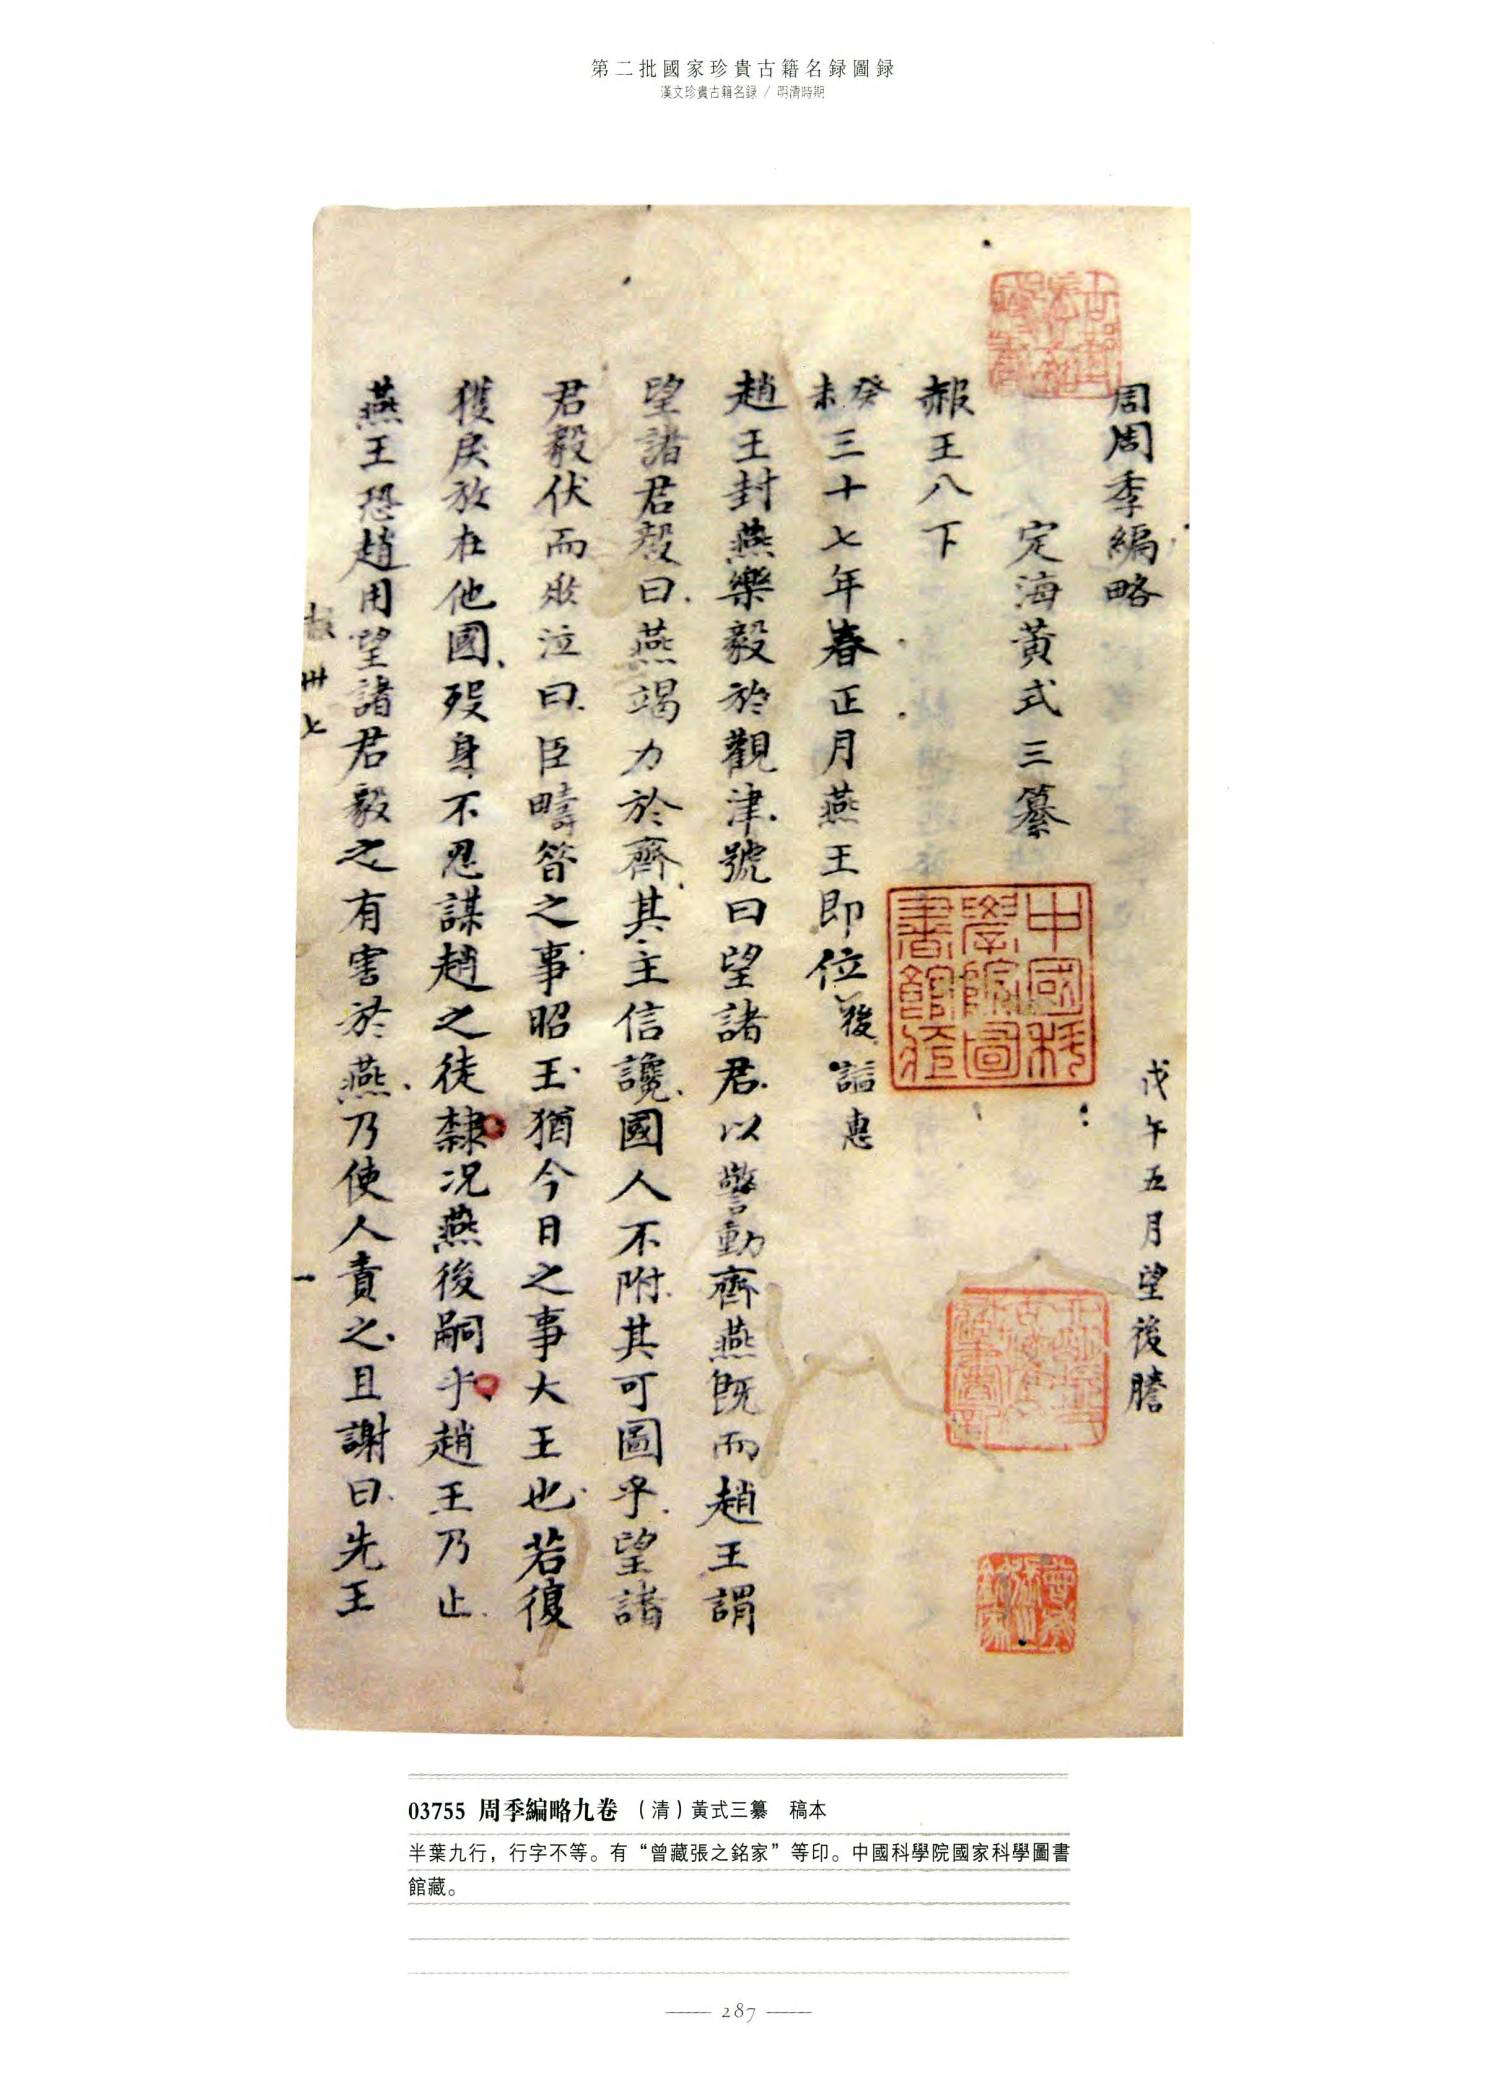 第二批國家珍貴古籍名録圖録
漢文珍貴古籍名録 / 明清時期
戊午五月望後謄
周周季編略
定海黃式三纂
赧王八下
癸未三十七年春正月燕王即位後謚惠
趙王封燕樂毅於觀津號曰望諸君以警動齊燕既而趙王謂
望諸君毅曰燕竭力於齊其主信讒國人不附其可圖乎望諸
君毅伏而垂泣曰臣疇昔之事昭王猶今日之事大王也若復
獲戾放在他國殁身不忍謀趙之徒隸況燕後嗣乎趙王乃止
燕王恐趙用望諸君毅之有害於燕乃使人責之且謝曰先王
赧卅七
中國科學院圖書館藏
03755 周季編略九卷 （清）黃式三纂 稿本
半葉九行，行字不等。有“曾藏張之銘家”等印。中國科學院國家科學圖書
館藏。
287